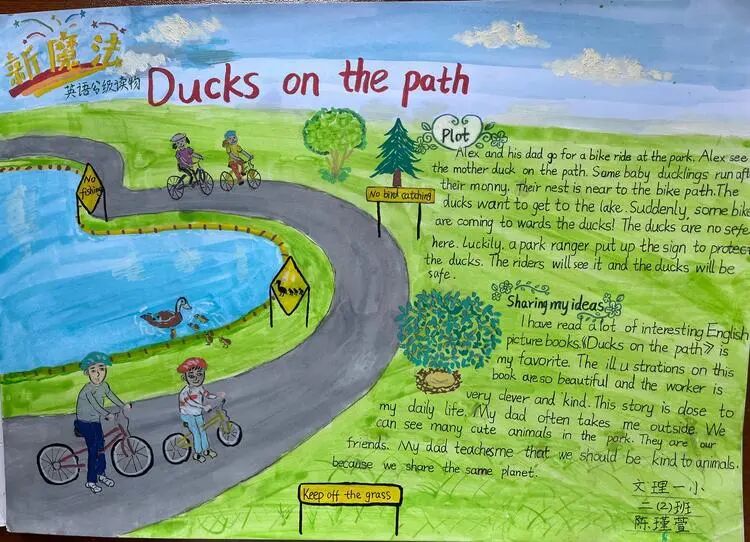 新魔法
英语分级读物
Ducks on the path
Plot
Alex and his dad go for a bike ride at the park. Alex see
the mother duck on the path. Some baby ducklings run aft
their monny. Their nest is near to the bike path. The
ducks want to get to the lake. Suddenly, some bik
are coming to wards the ducks! The ducks are no sefe
here. Luckily, a park ranger put up the sign to protect
the ducks. The riders will see it and the ducks will be
safe.
Sharing my ideas
I have read a lot of interesting English
picture books.《Ducks on the path》is
my favorite. The illustrations on this
book are so beautiful and the worker is
very clever and kind. This story is close to
my daily life. My dad often takes me outside. We
can see many cute animals in the park. They are our
friends. My dad teachesme that we should be kind to animals.
because we share the same planet.
No
fishing
No bird catching
Keep off the grass
文理一小
二(2)班
陈瑾萱